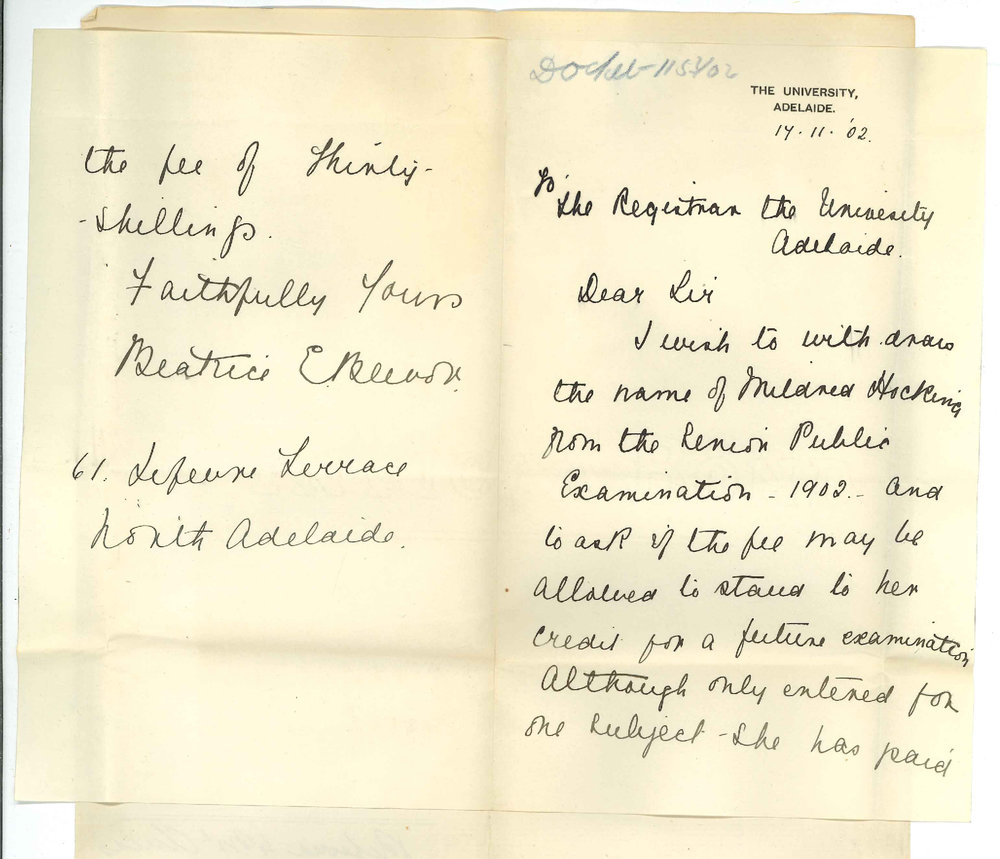 Docket 1157/02
THE UNIVERSITY,
ADELAIDE.
14.11.'02.
To The Registrar the University
Adelaide.
Dear Sir
I wish to with draw
the name of Mildred Hocking
from the Senior Public
Examination - 1902 - and
to ask if the fee may be
allowed to stand to her
credit for a future examination
Although only entered for
one subject - she has paid
the fee of Thirty-
-shillings.
Faithfully Yours
Beatrice E
61. Lefevre Terrace
North Adelaide.